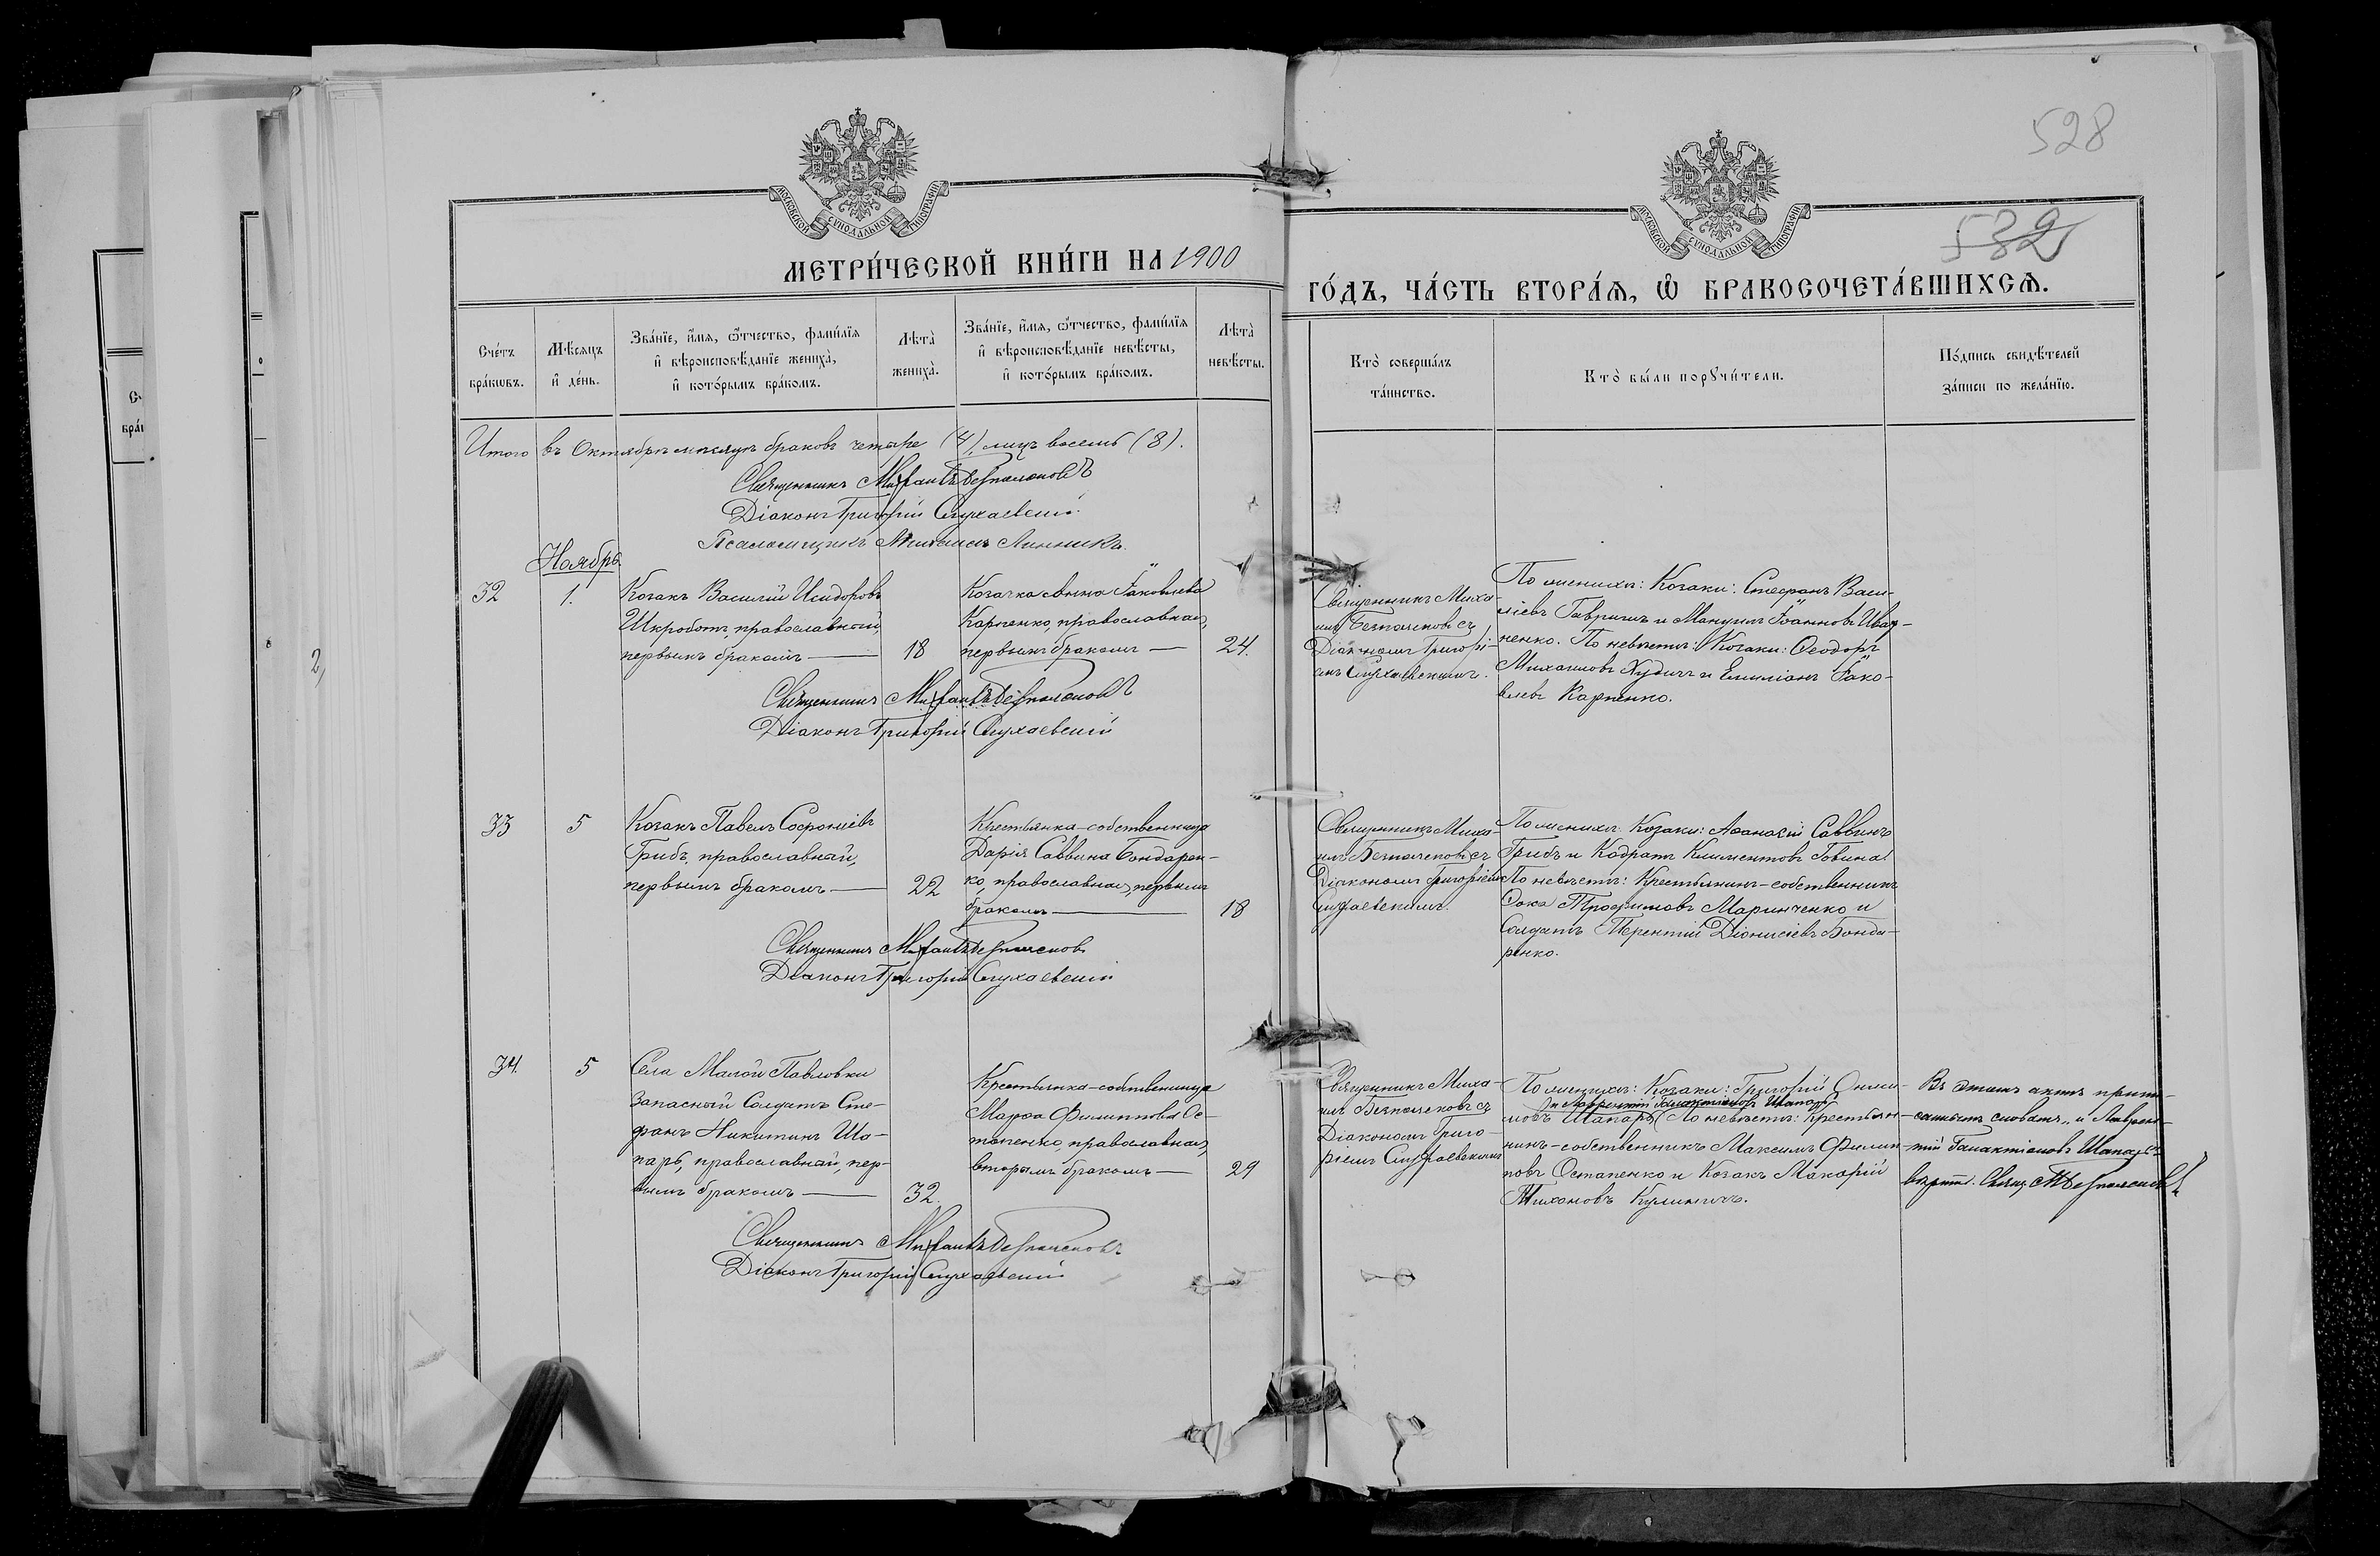 528
532
МОСКОВСКОЙ СУНОДАЛЬНОЙ ТИПОГРАФІИ
МОСКОВСКОЙ СУНОДАЛЬНОЙ ТИПОГРАФІИ
МЕТРИ́ЧЕСКОЙ КНИ́ГИ НА 1900
ГО́ДЪ, ЧА́СТЬ ВТОРА́Я, Ѡ БРАКОСОЧЕТА́ВШИХСѦ.
Сче́тъ
бра́кѡвъ.
Мѣ́сяцъ
и҆ де́нь.
Зва́нїе, и҆́мя, ѻ҆́тчество, фами́лїя
и҆ вѣроисповѣ́данїе жениха̀,
и҆ кото́рымъ бра́комъ.
Лѣта̀
жениха̀.
Зва́нїе, и҆́мя, ѻ҆́тчество, фами́лїя
и҆ вѣроисповѣ́данїе невѣ́сты,
и҆ кото́рымъ бра́комъ.
Лѣта̀
невѣ́сты.
Кто̀ соверша́лъ
та́инство.
Кто̀ бы́ли порꙋчи́тели.
По́дпись свидѣ́телей
за́писи по жела́нїю.
Итого въ Октябрѣ мѣсяцѣ браковъ четыре (4), лицъ восемь (8).
Священникъ Михаилъ
Діаконъ Григорій Слухаевскій
Псаломщикъ Михаилъ Линникъ.
Ноябрь
32
1.
Козакъ Василій Исидоровъ
Шкроботъ, православный,
первымъ бракомъ —
18
Козачка Анна Іаковлева
Карпенко, православная,
первымъ бракомъ —
24.
Священникъ Миха-
илъ съ
Діакономъ Григорі-
емъ Слухаевскимъ.
По женихѣ: Козаки: Стефанъ Васи-
ліевъ Гавришъ и Мануилъ Іоанновъ Ивах-
ненко. По невѣстѣ: Козаки: Ѳеодоръ
Михаиловъ Худичъ и Емиліанъ Іако-
влевъ Карпенко.
Священникъ Михаилъ
Діаконъ Григорій Слухаевскій
33
5
Козакъ Павелъ Софроніевъ
Грибъ, православный,
первымъ бракомъ —
22
Крестьянка-собственница
Дарія Саввина Бондарен-
ко, православная, первымъ
бракомъ —
18
Священникъ Миха-
илъ съ
Діакономъ Григоріемъ
Слухаевскимъ.
По женихѣ: Козаки: Аѳанасій Саввинъ
Грибъ и Кодратъ Климентовъ
По невѣстѣ: Крестьянинъ-собственникъ
Ѳока Трофимовъ Маринченко и
Солдатъ Терентій Діонисіевъ Бонда-
ренко.
Священникъ Михаилъ
Діаконъ Григорій Слухаевскій
34.
5
Села Малой Павловки
Запасный Солдатъ Сте-
фанъ Никитинъ Ша-
парь, православный, пер-
вымъ бракомъ —
32.
Крестьянка-собственница
Марѳа Филиппова Ос-
тапенко, православная,
вторымъ бракомъ —
29
Священникъ Миха-
илъ съ
Діакономъ Григо-
ріемъ Слухаевскимъ
По женихѣ: Козаки: Григорій
и Лаврентій Галактіоновъ Шапарь
Шапарь. По невѣстѣ: Крестья-
нинъ-собственникъ Максимъ Филип-
повъ Остапенко и Козакъ Макарій
Тихоновъ Кулиничъ.
Въ этомъ актѣ припи-
саннымъ словамъ „и Лаврен-
тій Галактіоновъ Шапарь“
вѣрить. Свящ.
Священникъ Михаилъ
Діаконъ Григорій Слухаевскій